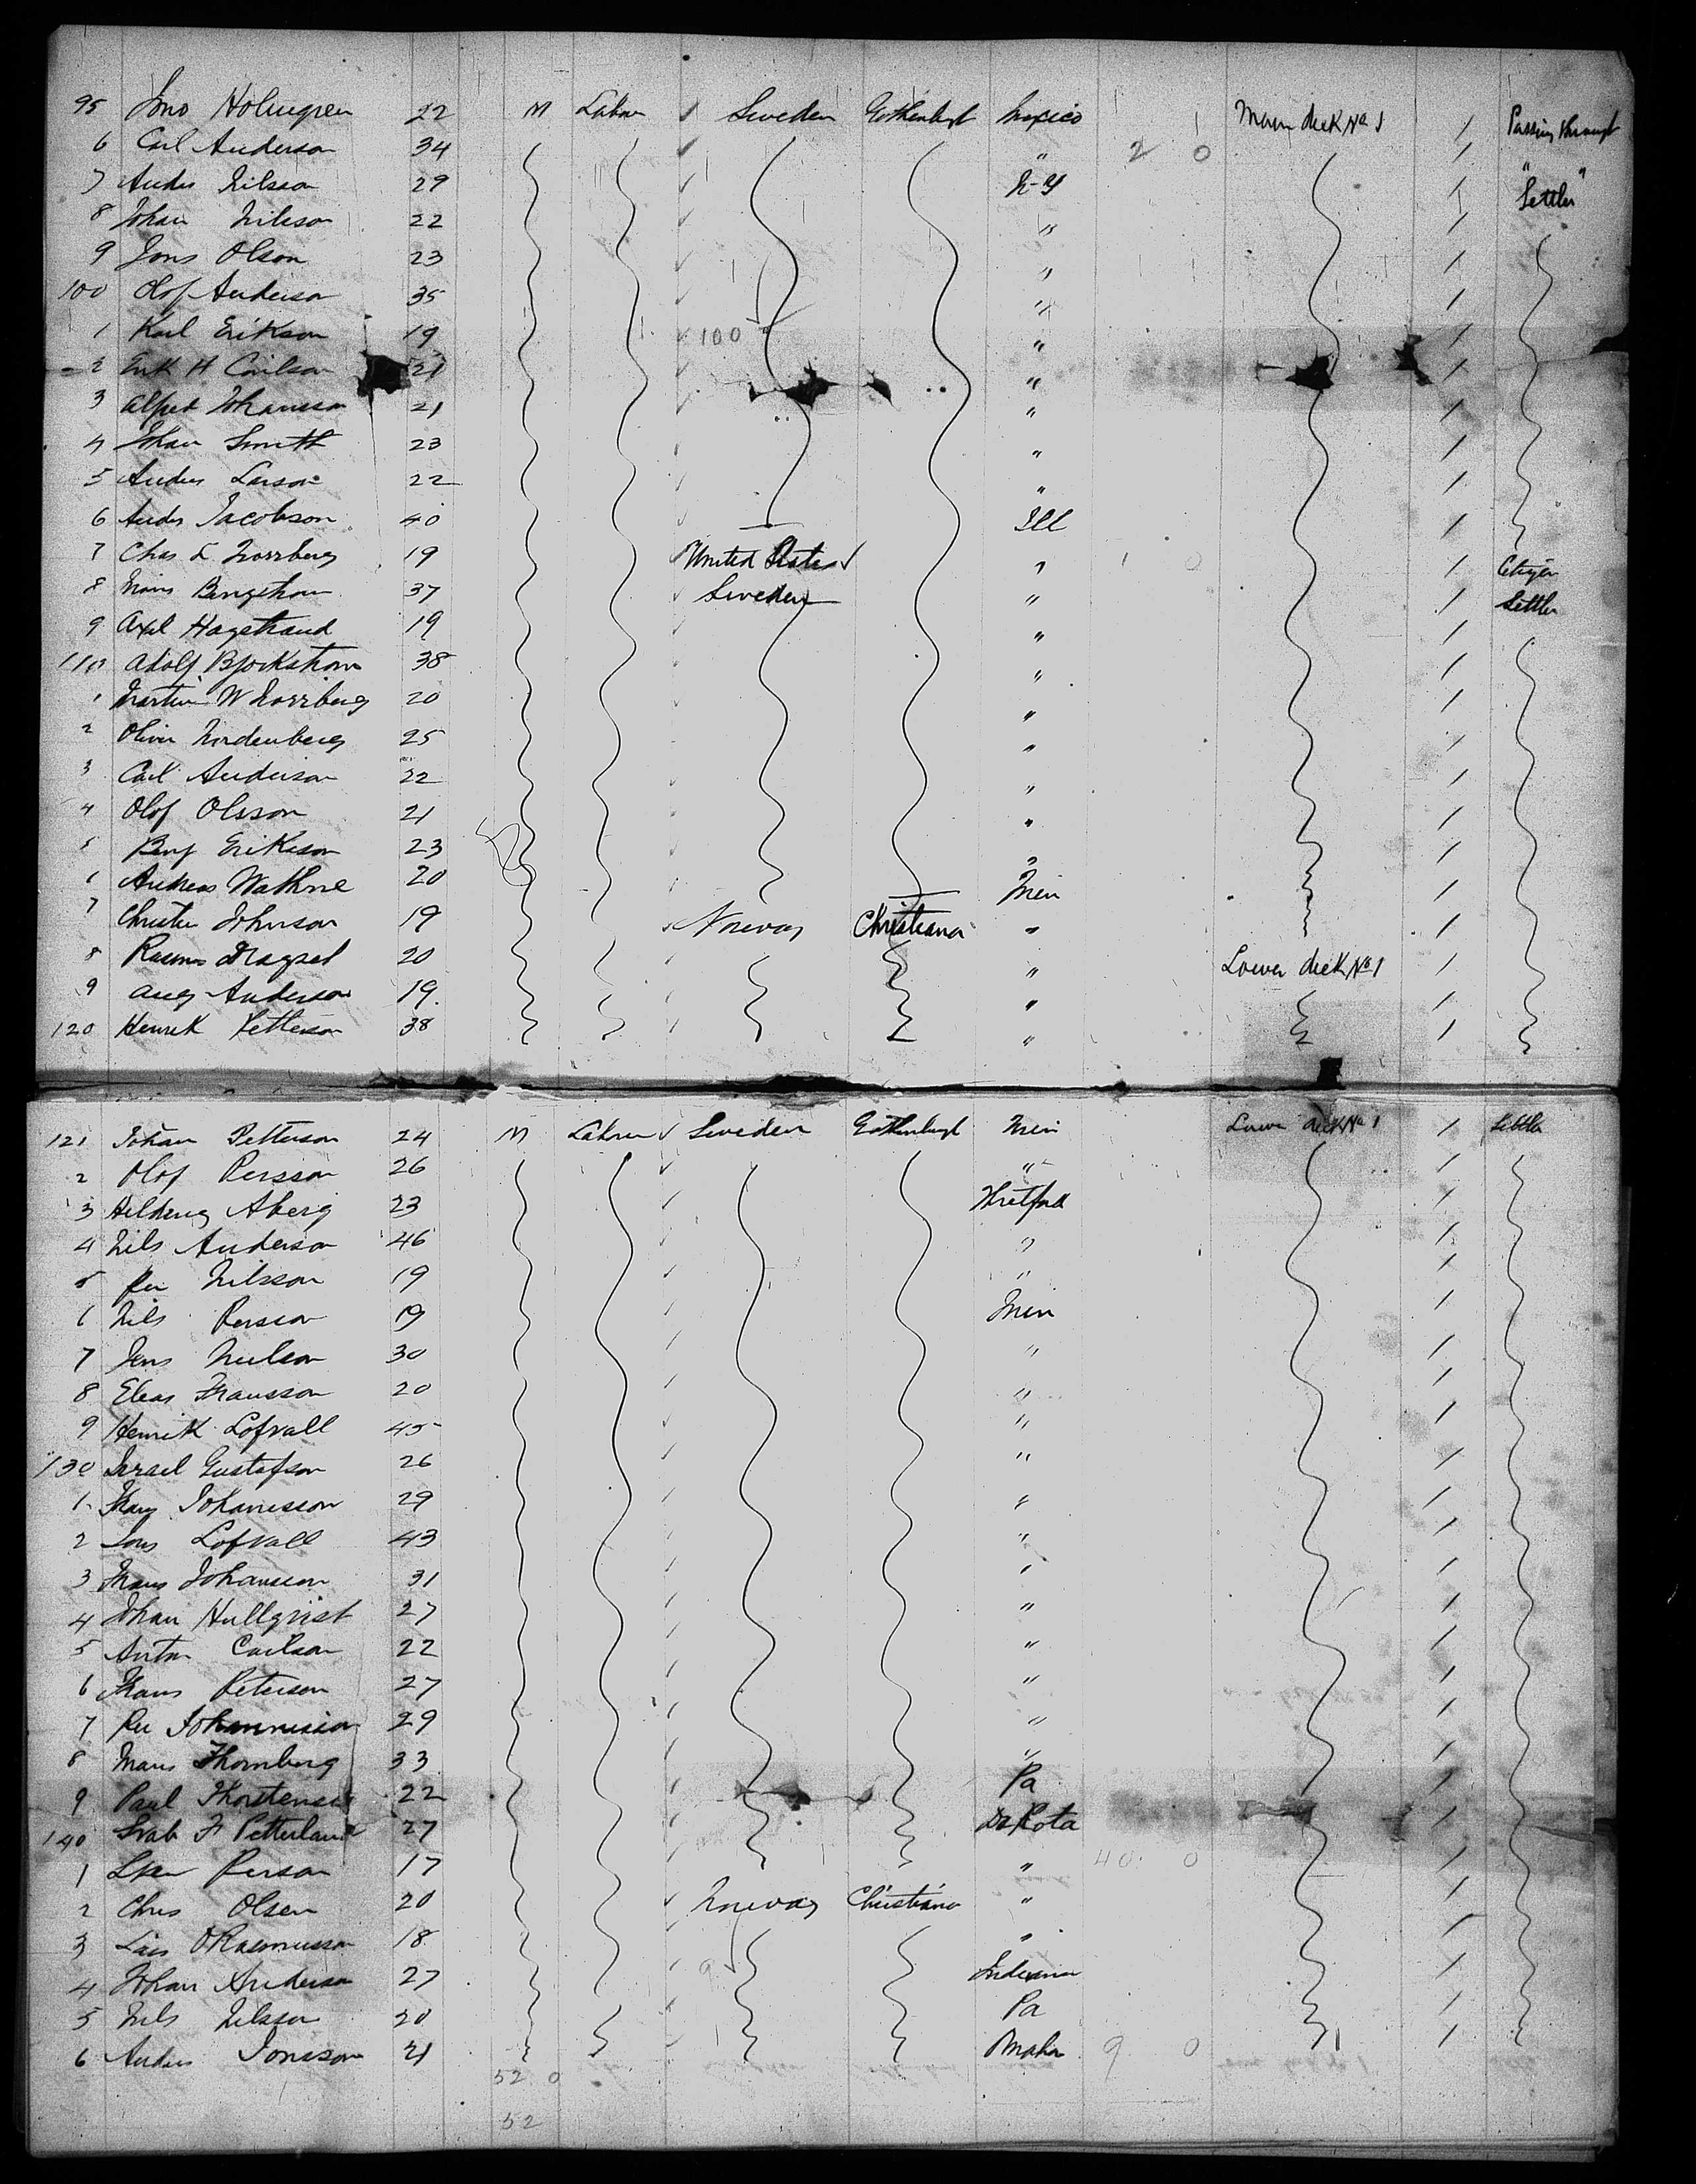 95 Jons Holmgren 22 M Labor Sweden Gothenburg Mexico Main deck No 1 / Passing through
6 Carl Anderson 34 " 2 0 / "
7 Andes Nilsson 29 N-Y / "Settler"
8 Johan Nilsson 22 " /
9 Jons Olson 23 " /
100 Olof Anderson 35 " /
1 Karl Erikson 19 100 " /
2 Erik H Carlson 21 " /
3 Alfred Johansson 21 " /
4 Johan Smith 23 " /
5 Andes Larson 22 " /
6 Andes Jacobson 40 Ill /
7 Chas L Norrberg 19 United States " 1 0 / Citizen
8 Bengstrom 37 Sweden " / Settler
9 Axel Hagstrand 19 " /
110 Adolf Bjorkstrom 38 " /
1 Martin W Norrberg 20 " /
2 Oliver Nordenberg 25 " /
3 Carl Anderson 22 " /
4 Olof Olsson 21 " /
5 Benj Erikson 23 " /
6 Andreas Wathne 20 Min /
7 Christen Johnson 19 Norway Christiana " /
8 Rasmus 20 " Lower deck No 1 /
9 Aug Anderson 19. " /
120 Henrik Petterson 38 " /
121 Johan Petterson 24 M Labour Sweden Gothenburgh Min Lower deck No 1 / Settler
2 Olof Persson 26 " /
3 Aberg 23 /
4 Nils Anderson 46 " /
5 Per Nilsson 19 " /
6 Nils Persson 19 Min /
7 Jens Neilson 30 " /
8 Elias Fransson 20 " /
9 Henrik Lofvall 45 " /
130 Israel Gustafson 26 " /
1 Johannesson 29 " /
2 Jons Lofvall 43 " /
3 Frans Johansson 31 " /
4 Johan Hullqvist 27 " /
5 Anton Carlson 22 " /
6 Frans Peterson 27 " /
7 Per Johannesson 29 " /
8 Mans Thornberg 33 " /
9 Paul Thorstensen 22 Pa /
140 27 Dakota /
1 Person 17 " 40 0 /
2 Chris Olsen 20 Norway Christiana " /
3 Lars O Rasmusson 18 " /
4 Johan Anderson 27 9 Indiana /
5 Nils Nilsson 20 Pa /
6 Andes Jonsson 21 Omaha 9 0 /
52 0
52